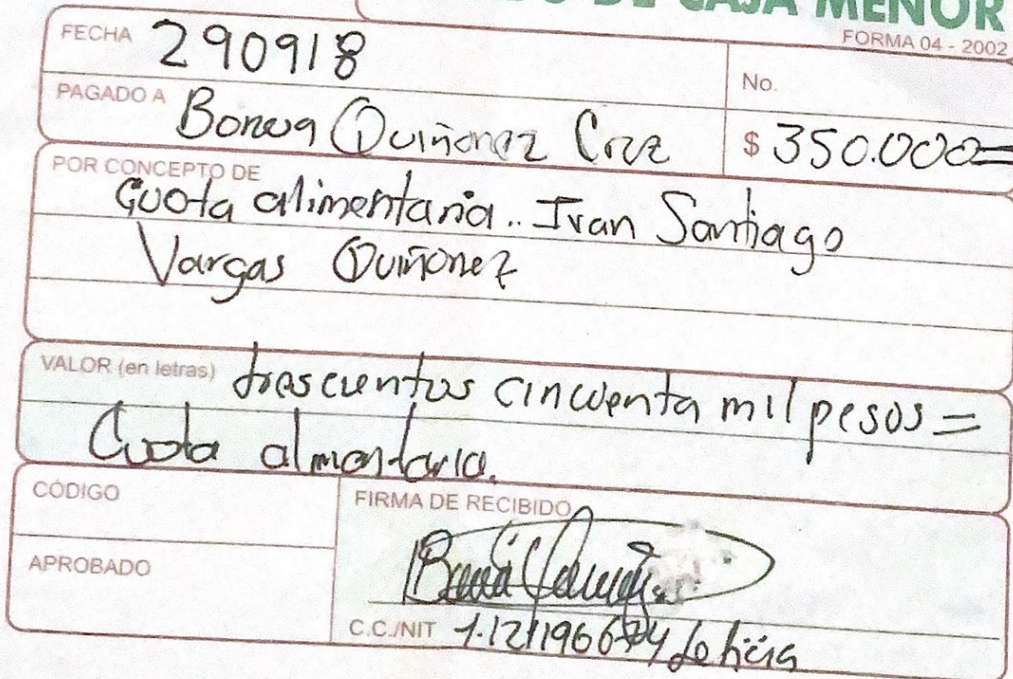 DE CAJA MENOR
FORMA 04 - 2002
FECHA 290918
No.
PAGADO A Quiñonez Cruz
$ 350.000=
POR CONCEPTO DE
Cuota alimentaria.. Ivan Santiago
Vargas Quiñonez
VALOR (en letras) trescientos cincuenta mil pesos =
Cuota almentaria.
CÓDIGO
FIRMA DE RECIBIDO
APROBADO
C.C./NIT Leticia